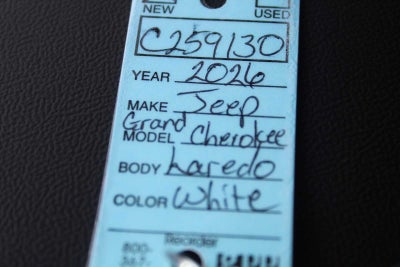 NEW USED
C259130
YEAR 2026
MAKE Jeep
Grand
MODEL Cherokee
BODY Laredo
COLOR White
Reorder
800-